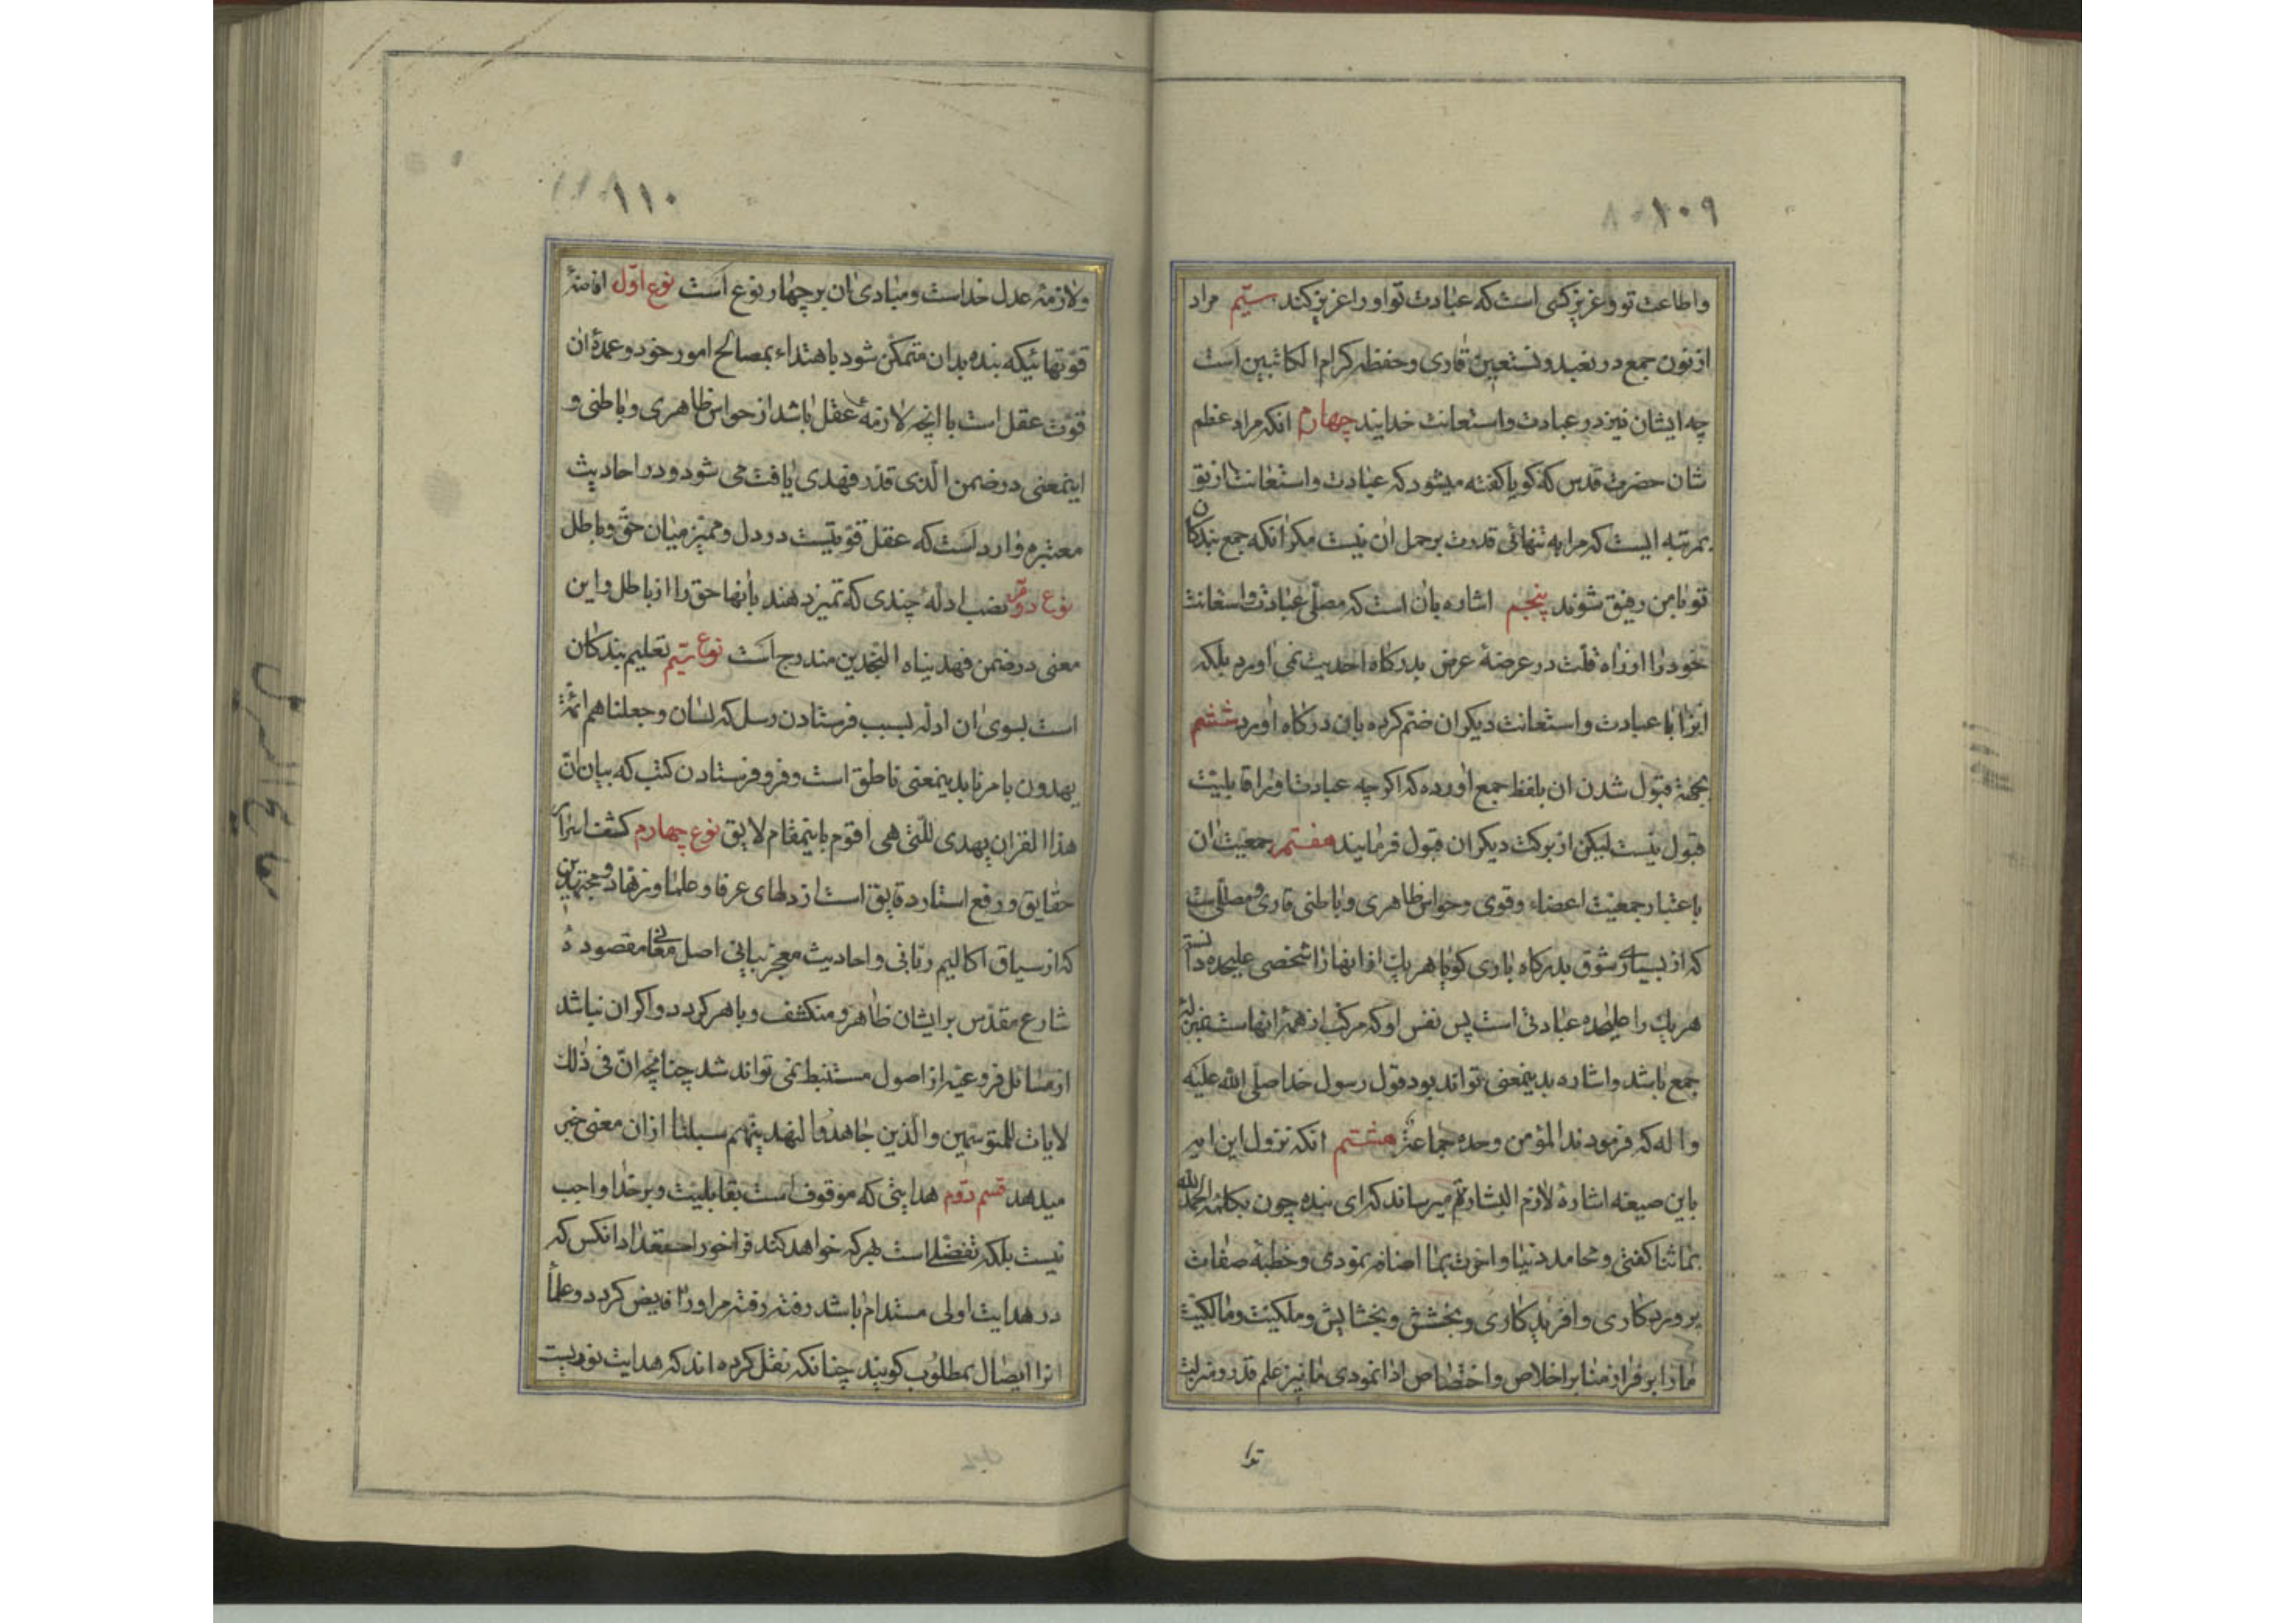 ۱۰۹
واطاعت تو وعزیز کسی است که عبادت تو اورا عزیز کند سیّم مراد
از نون جمع در نعبد ونستعین قاری وحفظه کرام الکاتبین است
چه ایشان نیز در عبادت واستعانت خدایند چهارم انکه مراد عظم
شان حضرت قدس که کویا کفته میشود که عبادت واستعانت از تو
بمرتبه ایست که مرا به تنهائی قدرت بر حمل ان نیست مکر انکه جمع بندکان
تو با من رفیق شوند پنجم اشاره بان است که مصلّی عبادت واستعانت
خود را از راه قلّت در عرضهٔ عرض بدرکاه احدیت نمی اورم بلکه
انرا با عبادت واستعانت دیکران ضم کرده بان درکاه اورد ششم
بجهة قبول شدن ان بلفظ جمع اورده که اکرچه عبادت اورا قابلیّت
قبول نیست لیکن از برکت دیکران قبول فرمایند هفتم جمعیّت ان
باعتبار جمعیّت اعضاء وقوی وحواس ظاهری وباطنی قاری ومصلّی است
که از بسیاری شوق بدرکاه باری کویا هر یک از اینها را شخصی علیحده دانسته
هر یک را علیحده عبادتی است پس نفس او که مرکّب از همهٔ انهاست بمنزلهٔ
جمع باشد واشاره بدینمعنی تواند بود قول رسول خدا صلّی الله علیه
واله که فرمودند المؤمن وحده جماعة هشتم انکه نزول این امر
باین صیغه اشارهٔ لازم البشارة میرساند که ای بنده چون بکلمهٔ الحمد لله
بما ثنا کفتی ومحامد دنیا واخرت بما اضافه نمودی وخطبهٔ صفات
پروردکاری وافریدکاری وبخشش وبخشایش وملکیّت ومالکیّت
مارا بر فراز منابر اخلاص واختصاص ادا نمودی ما نیز علم قدر ومنزلت
ترا
۱۱۰
ولازمهٔ عدل خداست ومبادی ان بر چهار نوع است نوع اوّل افاضهٔ
قوّتهائیکه بنده بدان متمکّن شود باهتداء بمصالح امور خود وعمدهٔ ان
قوّت عقل است با انچه لازمهٔ عقل باشد از حواس ظاهری وباطنی و
اینمعنی در ضمن الّذی قدّر فهدی یافت می شود ودر احادیث
معتبره وارد است که عقل قوّتیست در دل وممیّز میان حقّ وباطل
نوع دوّم نصب ادلّهٔ چندی که تمیز دهند بانها حق را از باطل واین
معنی در ضمن فهدیناه النجدین مندرج است نوع سیّم تعلیم بندکان
است بسوی ان ادلّه بسبب فرستادن رسل که لسان وجعلناهم ائمّة
یهدون بامرنا بدینمعنی ناطق است وفرو فرستادن کتب که بیان انّ
هذا القران یهدی للّتی هی اقوم باینمقام لایق نوع چهارم کشف اسرار
حقایق ورفع استار دقایق است از دلهای عرفا وعلما وزهّاد ومجتهدین
که از سیاق اکالیم ربّانی واحادیث معجز بیانی اصل معانی مقصودهٔ
شارع مقدّس بر ایشان ظاهر ومنکشف وباهر کردد واکر ان نباشد
از مسائل فروعیّه از اصول مستنبط نمی تواند شد چنانچه انّ فی ذلک
لایات للمتوسّمین والّذین جاهدوا لنهدینّهم سبلنا از ان معنی خبر
میدهد قسم دوّم هدایتی که موقوف است بقابلیّت وبر خدا واجب
نیست بلکه تفضّلی است بهر که خواهد کند فراخور استعداد انکس که
در هدایت اولی مستدام باشد رفته رفته مر اورا فایض کردد وعلما
انرا ایصال بمطلوب کویند چنانکه نقل کرده اند که هدایت نوریست